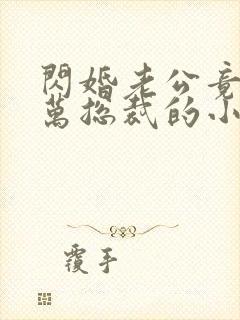 閃婚老公竟
萬總裁的小
覆手